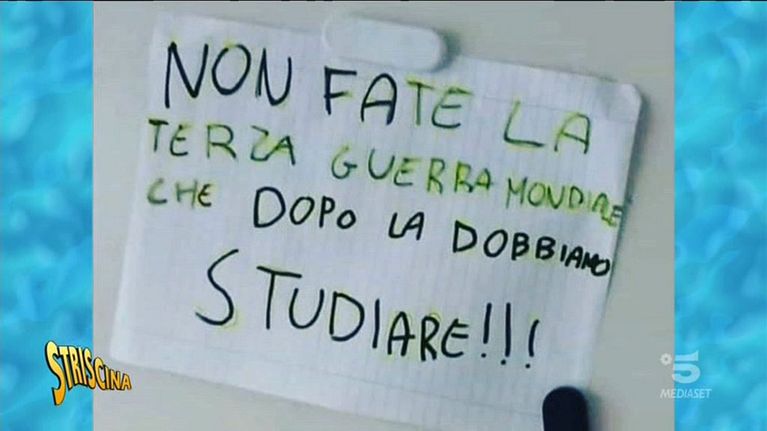 NON FATE LA
TERZA GUERRA MONDIALE
CHE DOPO LA DOBBIAMO
STUDIARE!!!
STRISCINA
5
MEDIASET